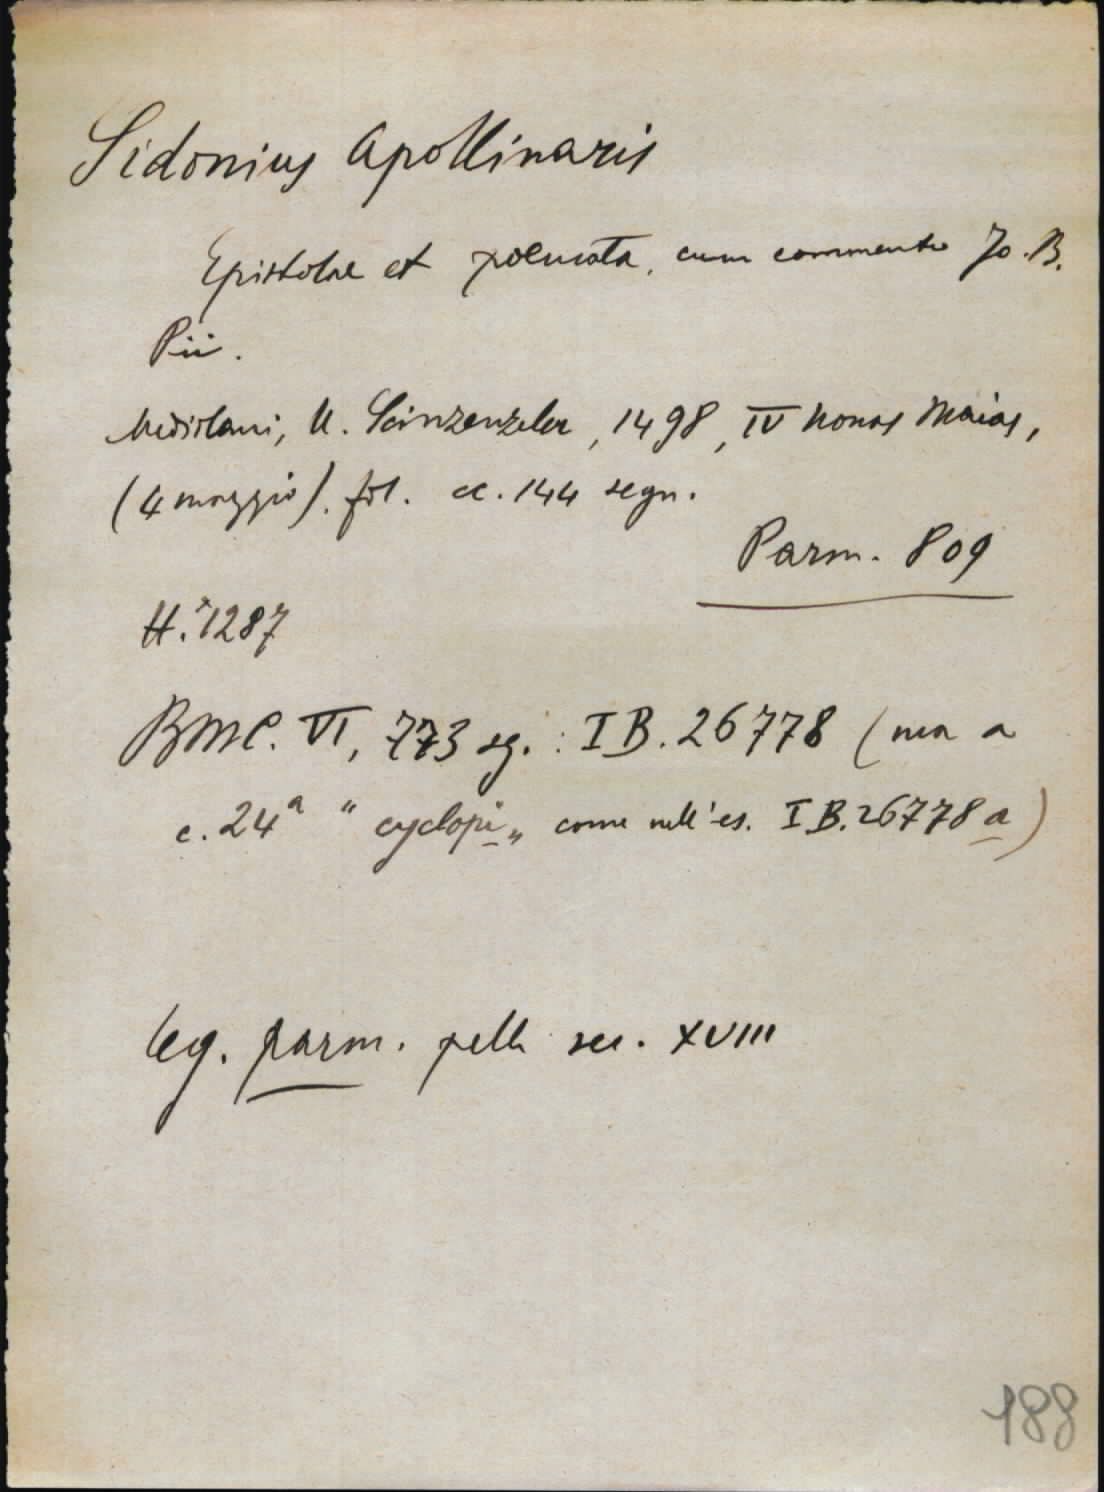 Sidonius Apollinaris
Epistolae et poemata, cum commento Jo. B.
Pii.
Mediolani, U. Scinzenzeler, 1498, IV Nonas Maias,
(4 maggio). fol. cc. 144 segn.
Parm. 809
H.*1287
BMC. VI, 773 sg. : IB. 26778 (ma a
c. 24ᵃ "cyclopi„ come nell'es. IB. 26778 a)
leg. parm. pelle sec. XVIII
188